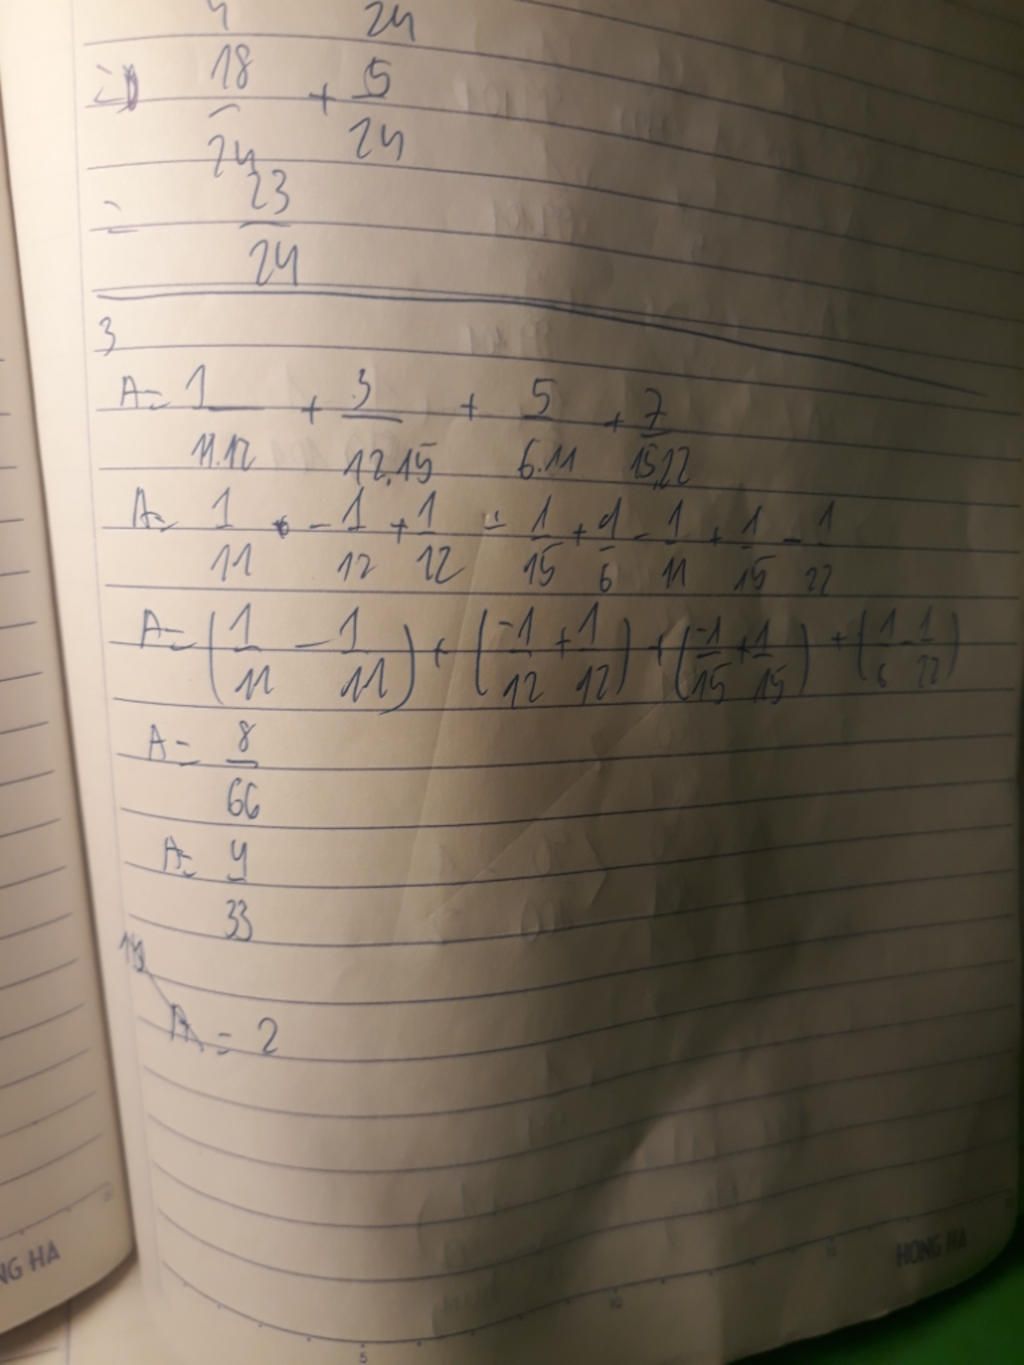 4 24
=) 18/24 + 5/24
= 23/24
3
A= 1/11.12 + 3/12.15 + 5/6.11 + 7/15.22
A= 1/11 - 1/12 + 1/12 - 1/15 + 1/6 - 1/11 + 1/15 - 1/22
A= (1/11 - 1/11) + (-1/12 + 1/12) + (-1/15 + 1/15) + (1/6 - 1/22)
A= 8/66
A= 4/33
A = 2
NG HA
HONG HA
5
10